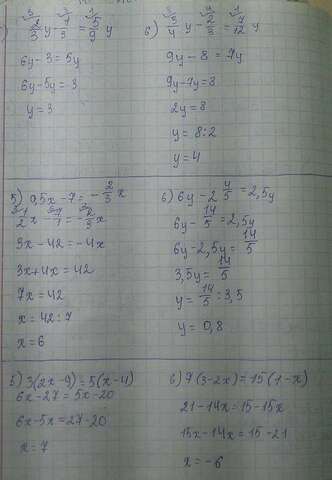 ) 2/3 y - 1/3 = 5/9 y
6y - 3 = 5y
6y - 5y = 3
y = 3
б) 3/4 y - 2/3 = 7/12 y
9y - 8 = 7y
9y - 7y = 8
2y = 8
y = 8 : 2
y = 4
5) 0,5x - 7 = - 2/3 x
1/2 x - 7/1 = - 2/3 x
3x - 42 = -4x
3x + 4x = 42
7x = 42
x = 42 : 7
x = 6
6) 6y - 2 4/5 = 2,5y
6y - 14/5 = 2,5y
6y - 2,5y = 14/5
3,5y = 14/5
y = 14/5 : 3,5
y = 0,8
5) 3(2x - 9) = 5(x - 4)
6x - 27 = 5x - 20
6x - 5x = 27 - 20
x = 7
6) 7(3 - 2x) = 15(1 - x)
21 - 14x = 15 - 15x
15x - 14x = 15 - 21
x = -6